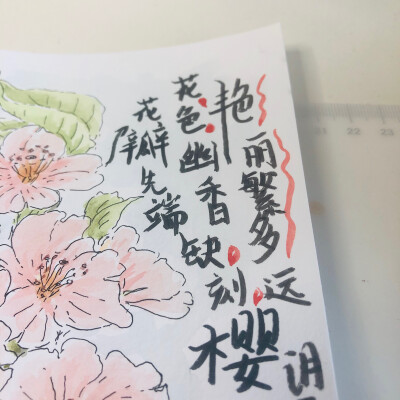 艳丽繁多
花色幽香
花瓣先端缺刻
远
樱
22 23